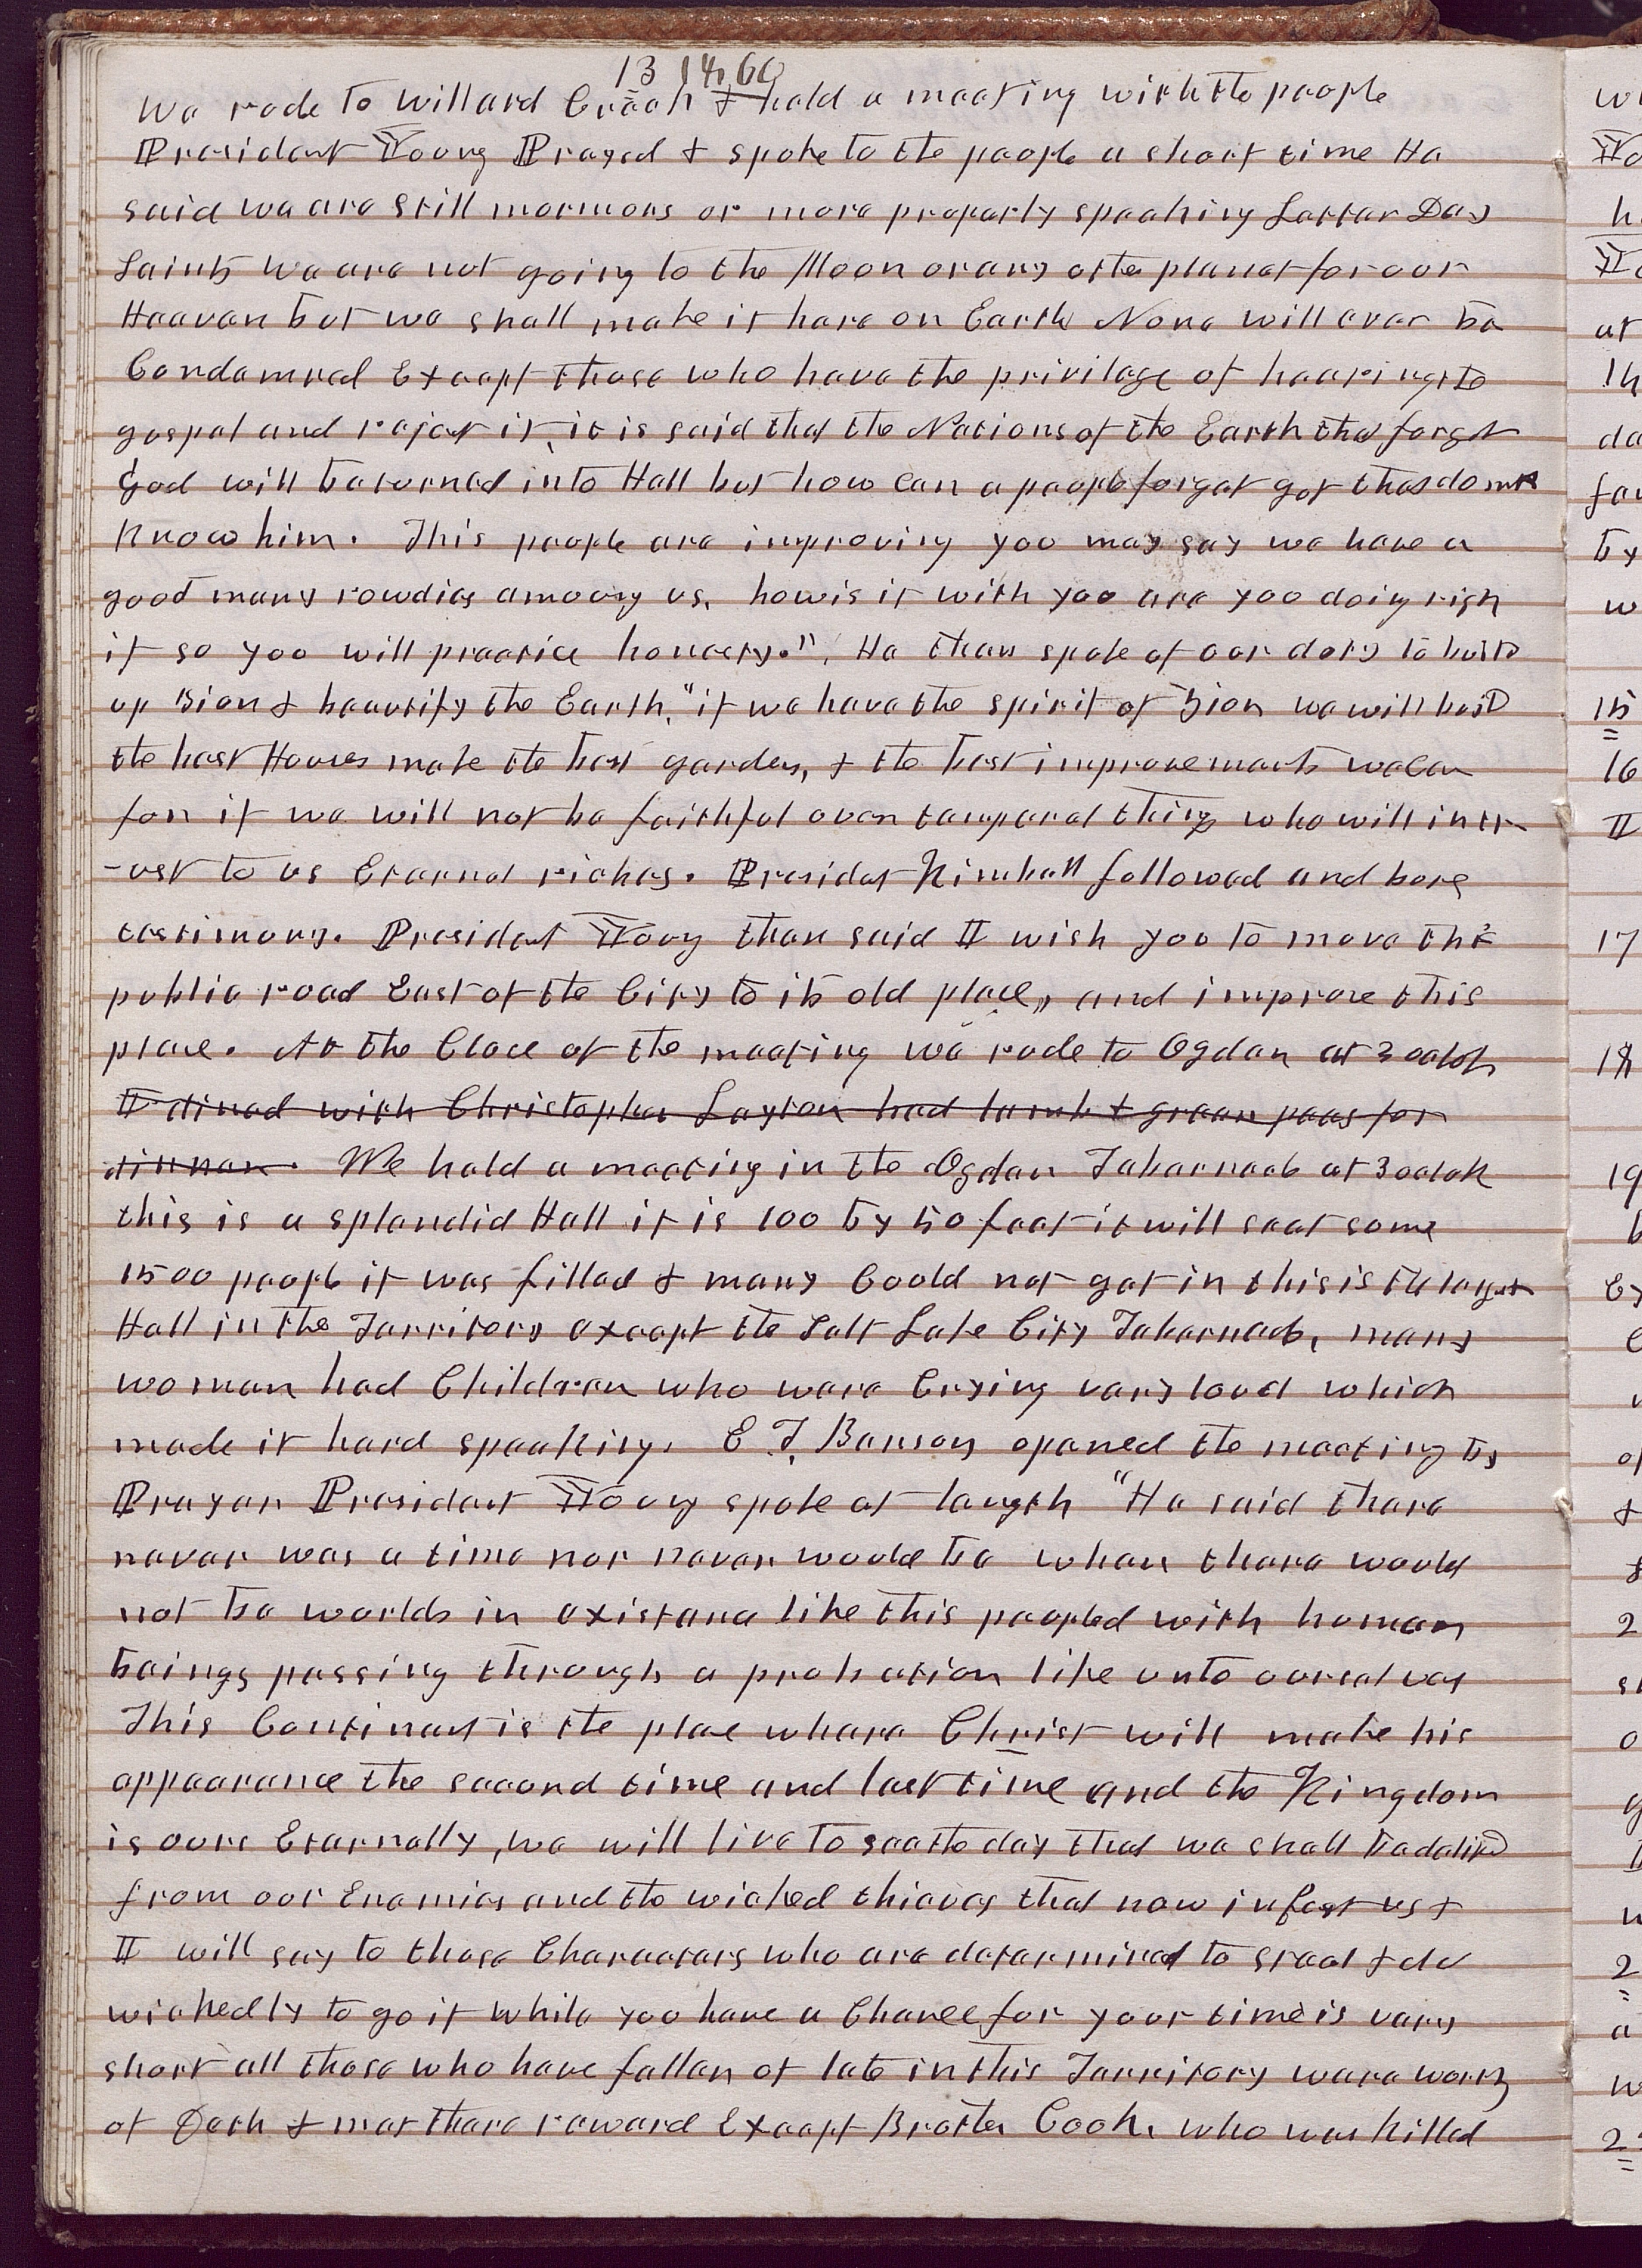 13 14, 60
We rode to Willard Creek & held a meeting with the people
President Young Prayed & spoke to the people a short time He
said we are still mormons or more properly speaking Latter Day
Saints we are not going to the Moon or any other planet for our
Heaven but we shall make it here on Earth None will ever be
Condemned Except those who have the privilege of hearing the
gospel and reject it, it is said that the Nations of the Earth that forget
God will be turned into Hell but how can a people forget got that do not
Know him. This people are improving you may say we have a
good many rowdies among us, how is it with you are you doing right
if so you will practice honesty." He then spoke of our duty to build
up Zion & beautify the Earth, "if we have the spirit of Zion we will build
the best Houses make the best gardens, & the best improvements we can
for if we will not be faithful over temporal things who will intr
-ust to us Eternal riches. President Kimball followed and bore
testimony. President Young then said I wish you to move the
public road East of the City to its old place, and improve this
place. At the Close of the meeting we rode to Ogden at 3 oclok
I dined with Christopher Layton had lamb & green peas for
dinner. We held a meeting in the Ogden Tabernacle at 3 oclok
this is a splendid Hall it is 100 by 50 feet it will seat some
1500 people it was filled & many Could not get in this is the largest
Hall in the Territory except the Salt Lake City Tabernacle, many
woman had Children who were Crying very loud which
made it hard speaking. E T, Benson opened the meeting by
Prayer President Young spoke at length "He said there
never was a time nor never would be when there would
not be worlds in existance like this peopled with human
beings passing through a probation like unto ourselves
This Continent is the place where Christ will make his
appearance the second time and last time and the Kingdom
is ours Eternally, we will live to see the day that we shall be deliverd
from our Enemies and the wicked thieves that now infest us &
I will say to those Characters who are determined to steal & do
wickedly to go it while you have a Chance for your time is very
short all those who have fallen of late in this Territory were worthy
of Deth & met there reward Except Brother Cook, who was killed